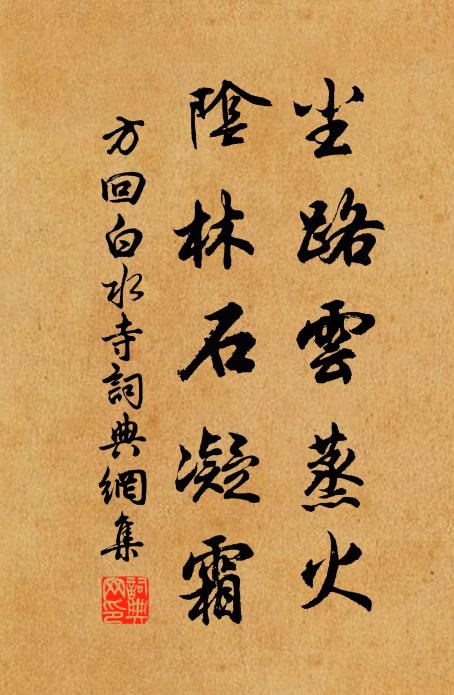 尘路雲蒸火
陰林石凝霜
方回白水寺詞典網集
詞典网印